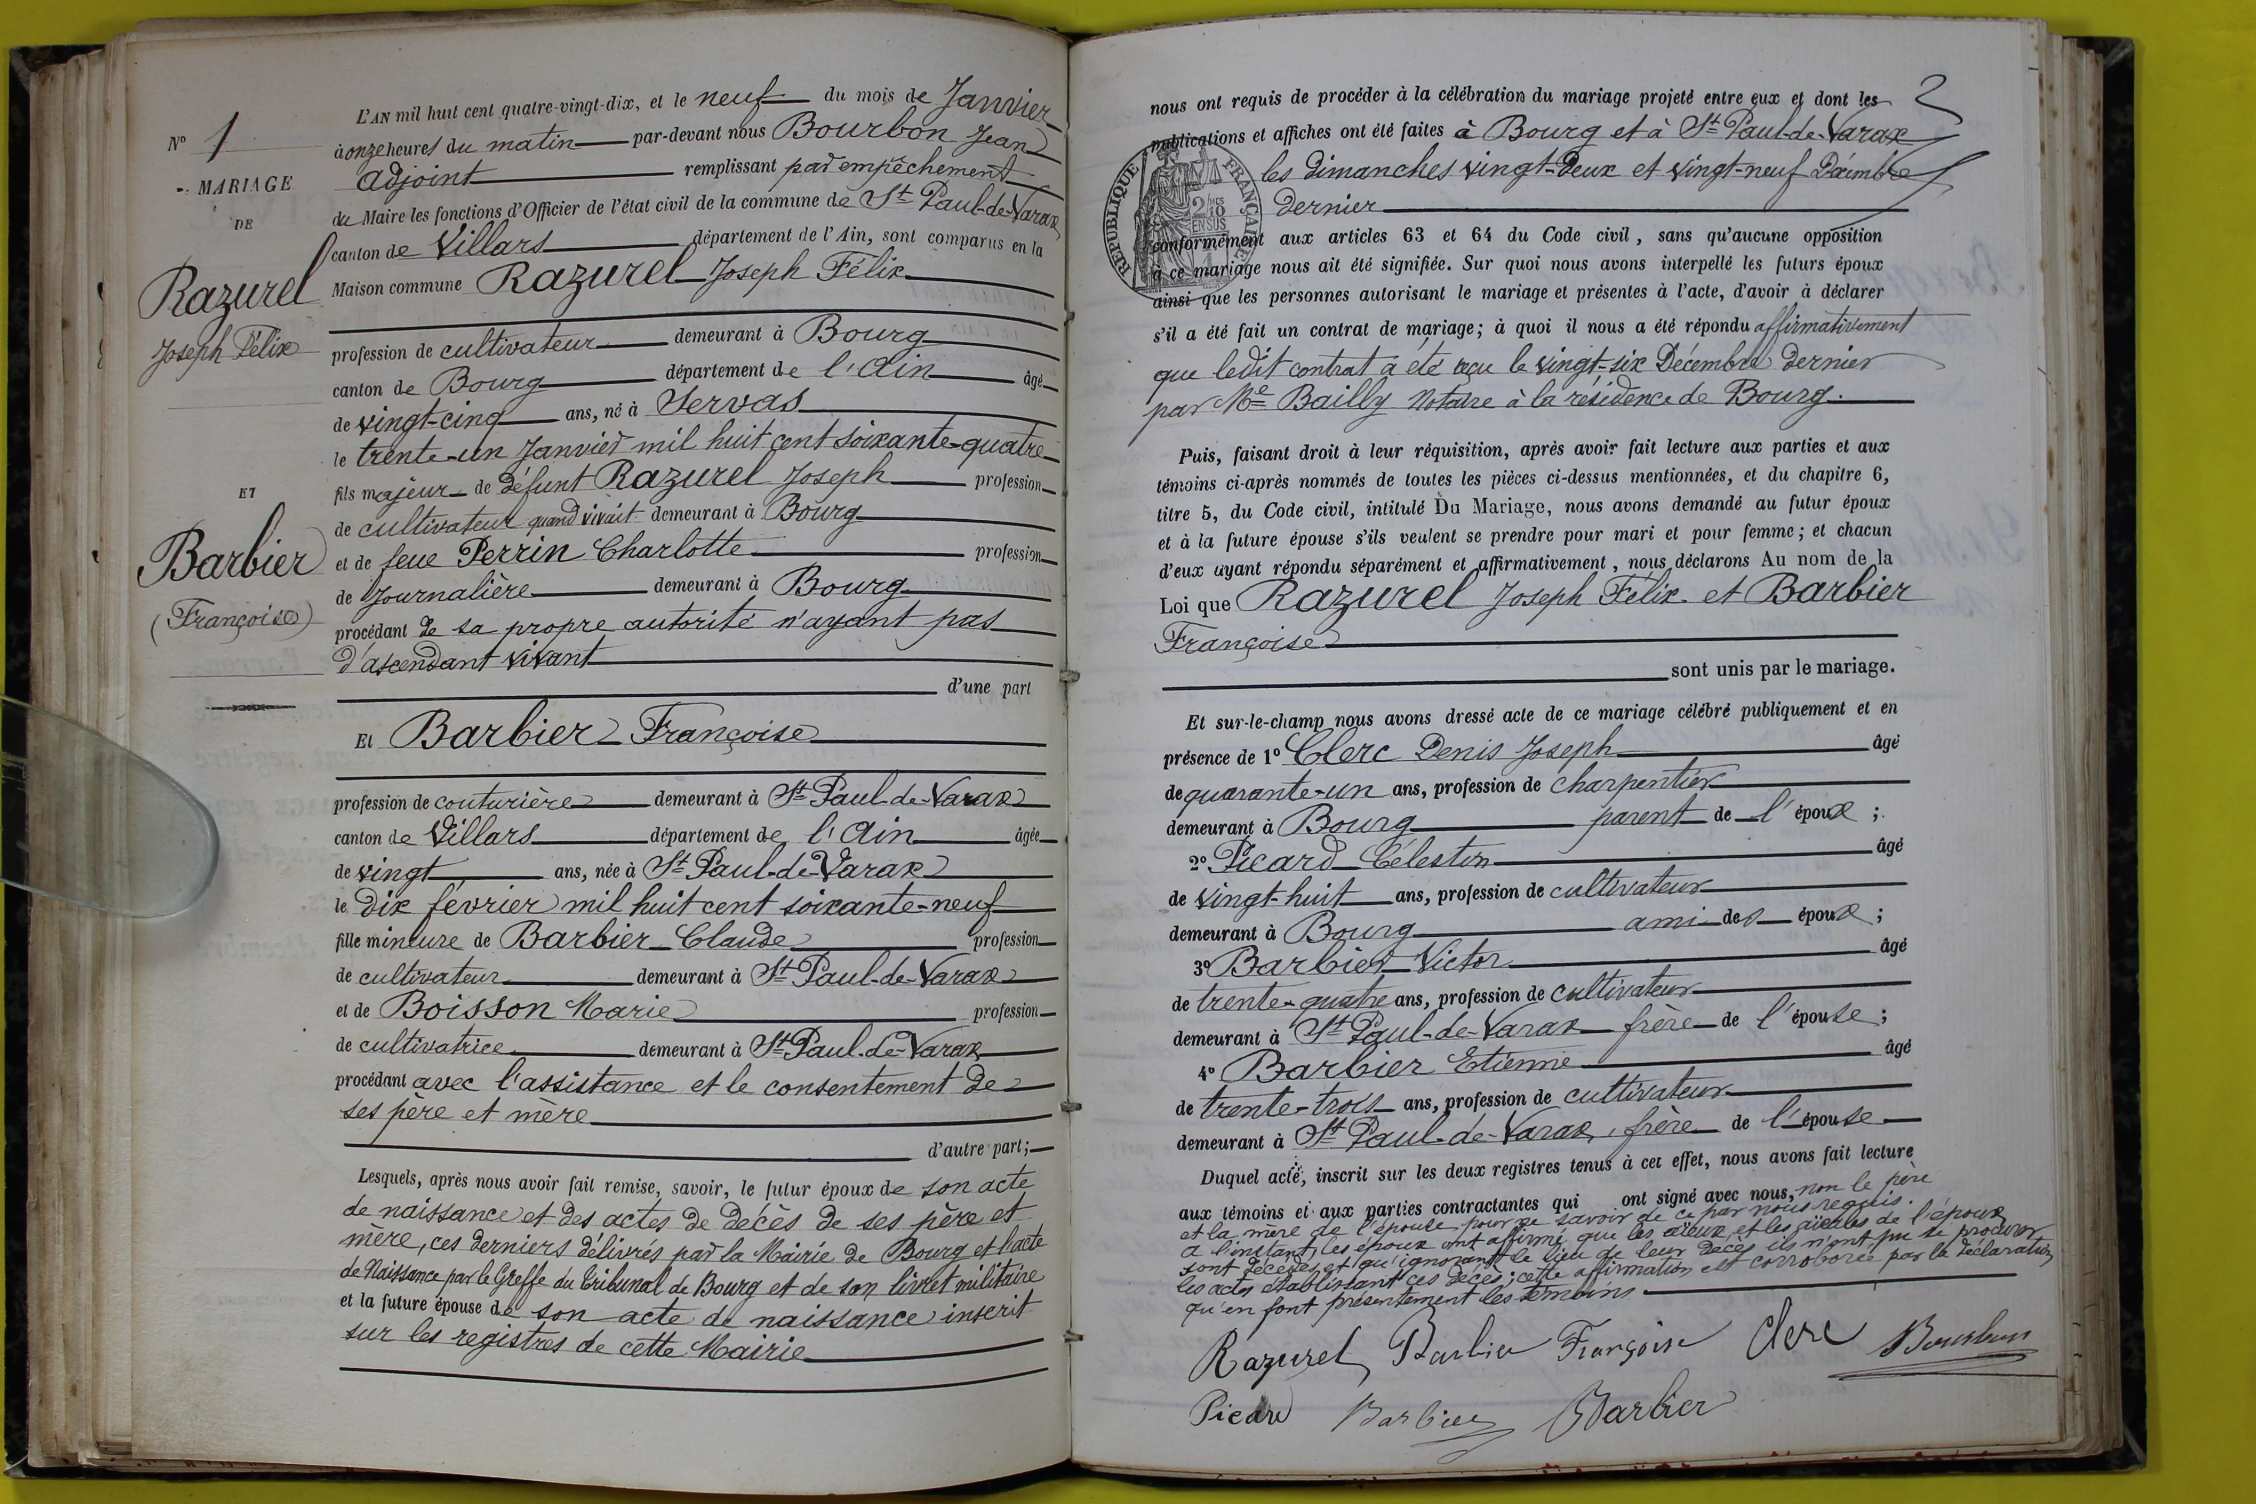 N° 1
MARIAGE
DE
Razurel
Joseph Félix
ET
Barbier
(Françoise)
L'AN mil huit cent quatre-vingt-dix, et le neuf du mois de Janvier
à onze heures du matin par-devant nous Bourbon Jean
adjoint remplissant par empêchement
du Maire les fonctions d'Officier de l'état civil de la commune de St Paul-de-Varax
canton de Villars département de l'Ain, sont comparus en la
Maison commune Razurel Joseph Félix
profession de cultivateur demeurant à Bourg
canton de Bourg département de l'Ain âgé
de vingt-cinq ans, né à Servas
le trente-un Janvier mil huit cent soixante-quatre
fils majeur de défunt Razurel Joseph profession
de cultivateur quand vivait demeurant à Bourg
et de feue Perrin Charlotte profession
de Journalière demeurant à Bourg
procédant de sa propre autorité n'ayant pas
d'ascendant vivant
d'une part
Et Barbier Françoise
profession de couturière demeurant à St Paul-de-Varax
canton de Villars département de l'Ain âgée
de vingt ans, née à St Paul-de-Varax
le dix février mil huit cent soixante-neuf
fille mineure de Barbier Claude profession
de cultivateur demeurant à St Paul-de-Varax
et de Boisson Marie profession
de cultivatrice demeurant à St Paul-de-Varax
procédant avec l'assistance et le consentement de
ses père et mère
d'autre part;
Lesquels, après nous avoir fait remise, savoir, le futur époux de son acte
de naissance et des actes de décès de ses père et
mère, ces derniers délivrés par la Mairie de Bourg et l'acte
de Naissance par le Greffe du Tribunal de Bourg et de son livret militaire
et la future épouse de son acte de naissance inscrit
sur les registres de cette Mairie
2
nous ont requis de procéder à la célébration du mariage projeté entre eux et dont les
publications et affiches ont été faites à Bourg et à St Paul-de-Varax
les dimanches vingt-deux et vingt-neuf Décembre
dernier
RÉPUBLIQUE FRANÇAISE
2/10 EN SUS
conformément aux articles 63 et 64 du Code civil, sans qu'aucune opposition
à ce mariage nous ait été signifiée. Sur quoi nous avons interpellé les futurs époux
ainsi que les personnes autorisant le mariage et présentes à l'acte, d'avoir à déclarer
s'il a été fait un contrat de mariage; à quoi il nous a été répondu affirmativement
que ledit contrat a été reçu le vingt-six Décembre dernier
par Me Bailly Notaire à la résidence de Bourg.
Puis, faisant droit à leur réquisition, après avoir fait lecture aux parties et aux
témoins ci-après nommés de toutes les pièces ci-dessus mentionnées, et du chapitre 6,
titre 5, du Code civil, intitulé Du Mariage, nous avons demandé au futur époux
et à la future épouse s'ils veulent se prendre pour mari et pour femme; et chacun
d'eux ayant répondu séparément et affirmativement, nous déclarons Au nom de la
Loi que Razurel Joseph Félix et Barbier
Françoise
sont unis par le mariage.
Et sur-le-champ nous avons dressé acte de ce mariage célébré publiquement et en
présence de 1° Clerc Denis Joseph âgé
de quarante-un ans, profession de charpentier
demeurant à Bourg parent de l'époux;
2° Picard Célestin âgé
de vingt-huit ans, profession de cultivateur
demeurant à Bourg ami des époux;
3° Barbier Victor âgé
de trente-quatre ans, profession de cultivateur
demeurant à St Paul-de-Varax frère de l'épouse;
4° Barbier Etienne âgé
de trente-trois ans, profession de cultivateur
demeurant à St Paul-de-Varax, frère de l'épouse
Duquel acte, inscrit sur les deux registres tenus à cet effet, nous avons fait lecture
aux témoins et aux parties contractantes qui ont signé avec nous, non le père
et la mère de l'épouse pour ne savoir de ce par nous requis.
A l'instant les époux ont affirmé que les aïeux et les aïeules de l'époux
sont décédés et qu'ignorant le lieu de leur décès ils n'ont pu se procurer
les actes établissant ces décès; cette affirmation est corroborée par la déclaration
qu'en font présentement les témoins
Razurel Barbier Françoise Clerc Bourbon
Picard Barbier Barbier